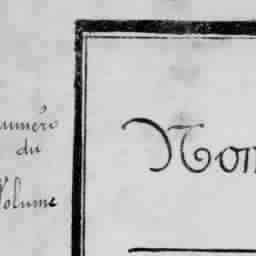 uméro
du
Volume
Nom